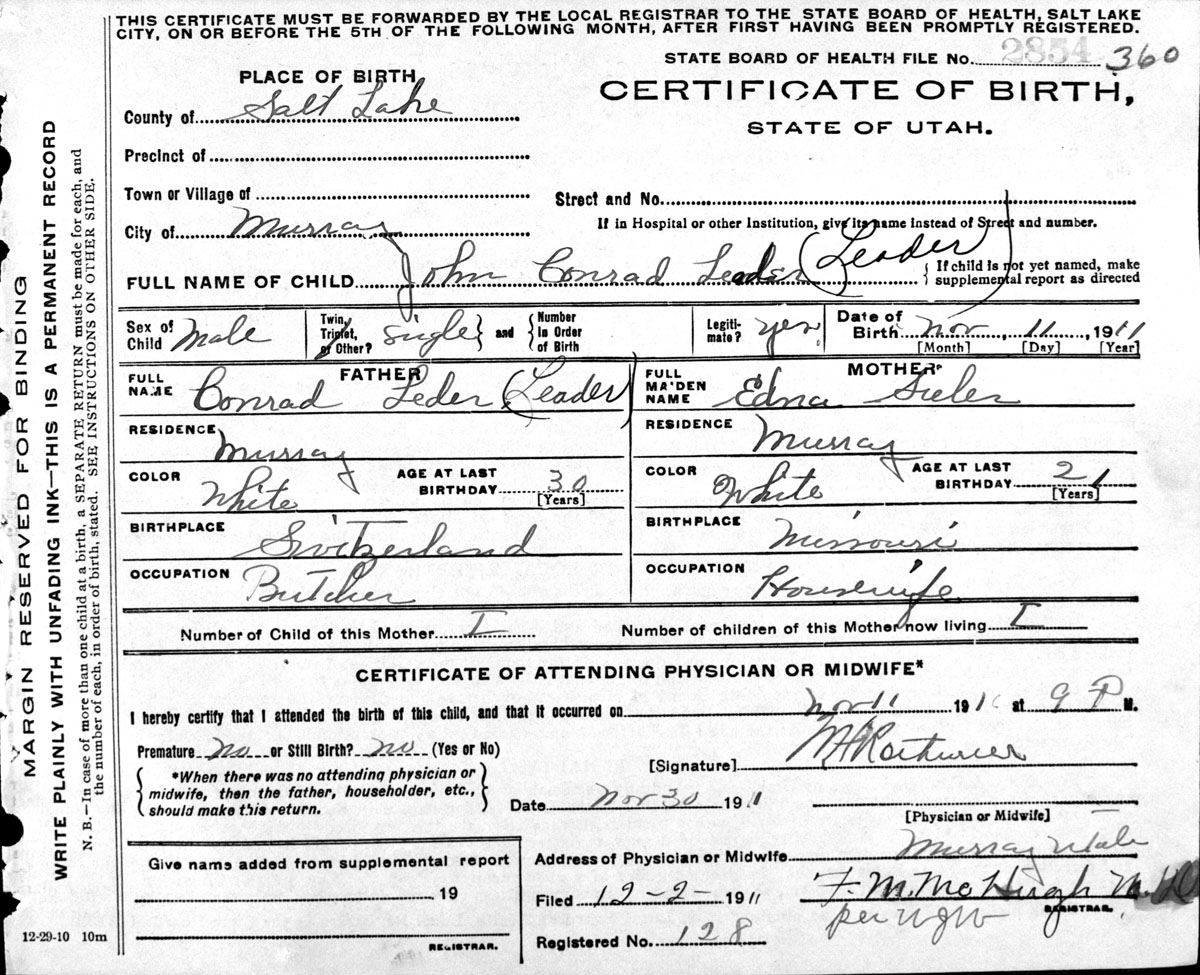 THIS CERTIFICATE MUST BE FORWARDED BY THE LOCAL REGISTRAR TO THE STATE BOARD OF HEALTH, SALT LAKE
CITY, ON OR BEFORE THE 5TH OF THE FOLLOWING MONTH, AFTER FIRST HAVING BEEN PROMPTLY REGISTERED.
STATE BOARD OF HEALTH FILE No. 2854 360
PLACE OF BIRTH
CERTIFICATE OF BIRTH,
STATE OF UTAH.
County of Salt Lake
Precinct of
Town or Village of
Street and No.
City of Murray
If in Hospital or other Institution, give its name instead of Street and number.
FULL NAME OF CHILD John Conrad Leader (Leader)
{If child is not yet named, make
supplemental report as directed
Sex of
Child Male
Twin,
Triplet,
or Other? single} and {Number
in Order
of Birth
Legiti-
mate? yes
Date of
Birth Nov 11, 1911
[Month] [Day] [Year]
FATHER
FULL
NAME Conrad Leder (Leader)
MOTHER
FULL
MAIDEN
NAME Edna
RESIDENCE Murray
RESIDENCE Murray
COLOR White
AGE AT LAST
BIRTHDAY 30
[Years]
COLOR White
AGE AT LAST
BIRTHDAY 21
[Years]
BIRTHPLACE Switzerland
BIRTHPLACE Missouri
OCCUPATION Butcher
OCCUPATION Housewife
Number of Child of this Mother I
Number of children of this Mother now living I
CERTIFICATE OF ATTENDING PHYSICIAN OR MIDWIFE*
I hereby certify that I attended the birth of this child, and that it occurred on Nov 11 191 at 9 P M.
Premature no or Still Birth? no (Yes or No)
[Signature]
{*When there was no attending physician or
midwife, then the father, householder, etc.,
should make this return.}
Date Nov 30 1911
[Physician or Midwife]
Give name added from supplemental report
19
REGISTRAR.
Address of Physician or Midwife Murray Utah
Filed 12-2- 1911
F. M. McHugh M.D.
REGISTRAR.
per
Registered No. 128
12-29-10 10m
MARGIN RESERVED FOR BINDING
WRITE PLAINLY WITH UNFADING INK—THIS IS A PERMANENT RECORD
N. B.—In case of more than one child at a birth, a SEPARATE RETURN must be made for each, and
the number of each, in order of birth, stated. SEE INSTRUCTIONS ON OTHER SIDE.